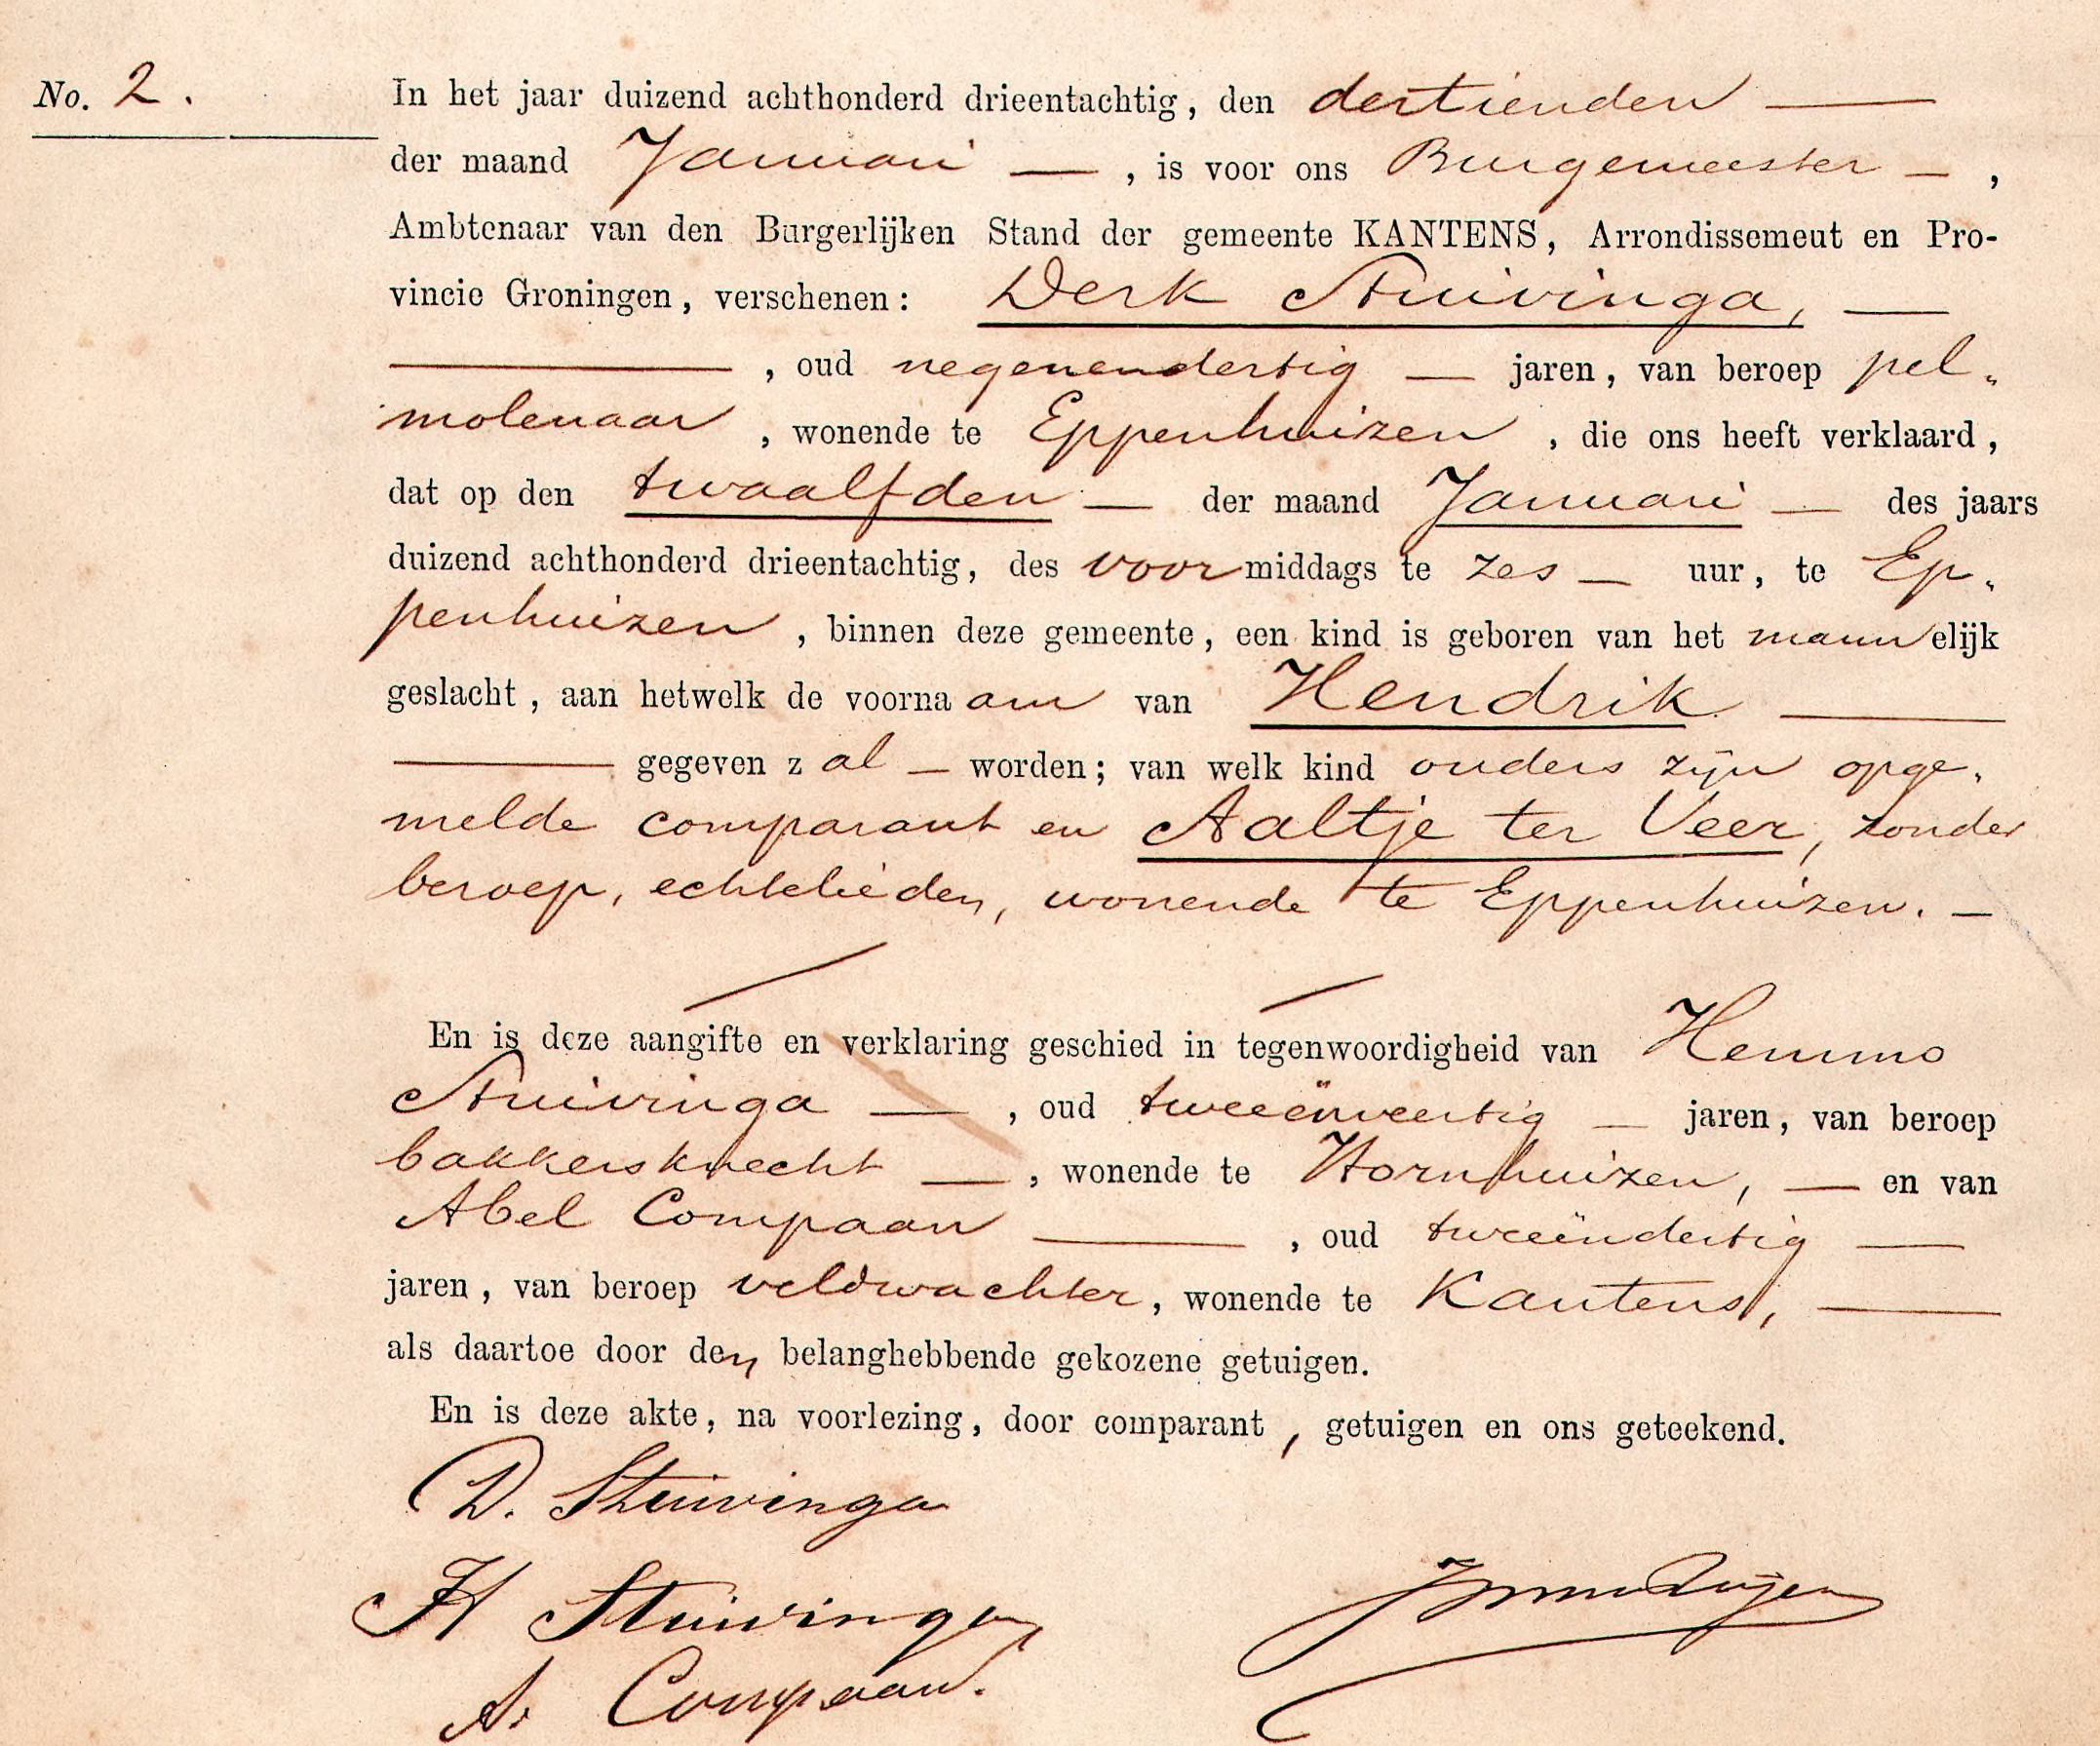 No. 2.
In het jaar duizend achthonderd drieentachtig, den dertienden —
der maand Januari —, is voor ons Burgemeester —,
Ambtenaar van den Burgerlijken Stand der gemeente KANTENS, Arrondissement en Pro-
vincie Groningen, verschenen: Derk Stuivinga, —
—, oud negenendertig — jaren, van beroep pel-
molenaar, wonende te Eppenhuizen, die ons heeft verklaard,
dat op den twaalfden — der maand Januari — des jaars
duizend achthonderd drieentachtig, des voormiddags te zes — uur, te Ep-
penhuizen, binnen deze gemeente, een kind is geboren van het mannelijk
geslacht, aan hetwelk de voornaam van Hendrik —
— gegeven zal — worden; van welk kind ouders zijn opge-
melde comparant en Aaltje ter Veer, zonder
beroep, echtelieden, wonende te Eppenhuizen. —
En is deze aangifte en verklaring geschied in tegenwoordigheid van Hemmo
Stuivinga —, oud tweeënveertig — jaren, van beroep
bakkersknecht —, wonende te Hornhuizen, — en van
Abel Compaan —, oud tweeëndertig —
jaren, van beroep veldwachter, wonende te Kantens, —
als daartoe door den belanghebbende gekozene getuigen.
En is deze akte, na voorlezing, door comparant, getuigen en ons geteekend.
D. Stuivinga
H Stuivinga
A. Compaan.